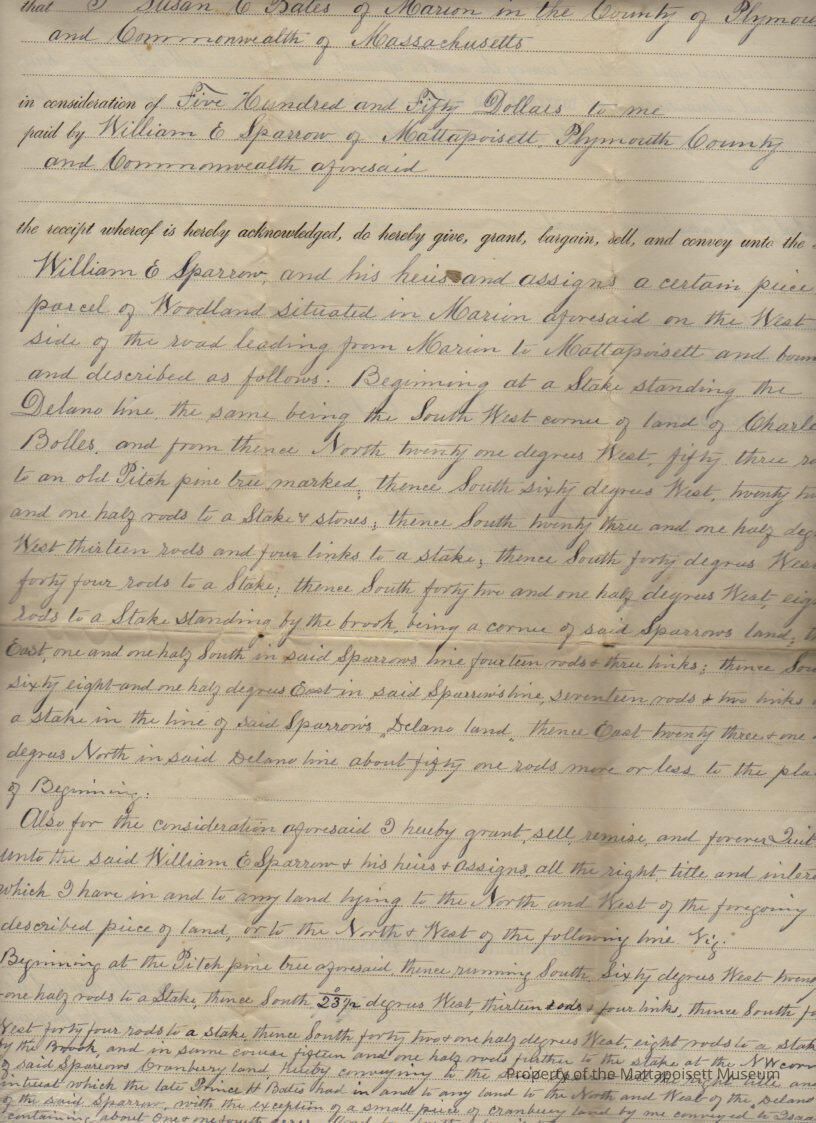 that I Susan C Bates of Marion in the County of Plymou
and Commonwealth of Massachusetts
in consideration of Five Hundred and Fifty Dollars to me
paid by William E Sparrow of Mattapoisett, Plymouth County
and Commonwealth aforesaid
the receipt whereof is hereby acknowledged, do hereby give, grant, bargain, sell, and convey unto the
William E Sparrow, and his heirs and assigns a certain piece
parcel of Woodland situated in Marion aforesaid on the West
side of the road leading from Marion to Mattapoisett and boun
and described as follows. Beginning at a Stake standing the
Delano line, the same being the South West corner of land of Charle
Bolles, and from thence North twenty one degrees West, fifty three ro
to an old Pitch pine tree marked; thence South sixty degrees West, twenty tw
and one half rods to a Stake & stones; thence South twenty three and one half deg
West thirteen rods and four links to a stake; thence South forty degrees West
forty four rods to a Stake; thence South forty two and one half degrees West, eigh
rods to a Stake standing by the brook, being a corner of said Sparrows land; th
East, one and one half South in said Sparrows line fourteen rods & three links; thence Sou
sixty eight and one half degrees East in said Sparrow's line, seventeen rods & two links
a Stake in the line of said Sparrow's "Delano land", thence East twenty three & one
degrees North in said Delano line about fifty one rods more or less to the pla
of Beginning.
Also for the consideration aforesaid I hereby grant, sell, remise, and forever Quit
unto the said William E Sparrow & his heirs & assigns, all the right title and intere
which I have in and to any land lying to the North and West of the foregoing
described piece of land, or to the North & West of the following line Viz.
Beginning at the Pitch pine tree aforesaid, thence running South, Sixty degrees West twenty
one half rods to a Stake, thence South, 23½ degrees West, thirteen rods & four links, thence South fo
West forty four rods to a stake, thence South forty two & one half degrees West, eight rods to a stake
by the Brook, and in same course fifteen and one half rods further to the stake at the NW corn
of said Sparrows Cranberry land hereby conveying to the said right title and
interest which the late Prince H Bates had in and to any land to the North and West of the Delano
of the said Sparrow, with the exception of a small piece of cranberry land by me conveyed to Isaa
containing about One & one fourth acres
Property of the Mattapoisett Museum